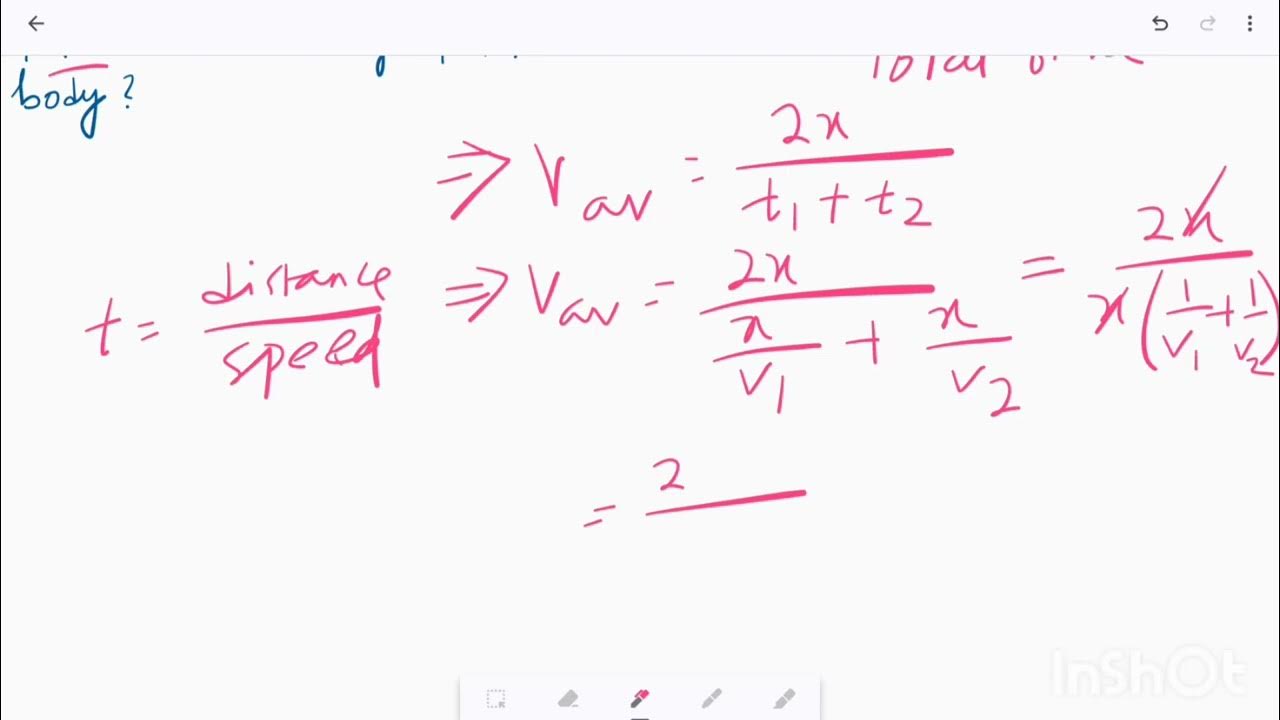 body?
Total
⇒ V_av = 2x / (t_1 + t_2)
t = distance / speed ⇒ V_av = 2x / (x/V_1 + x/V_2) = 2x / x(1/V_1 + 1/V_2)
= 2
InShOt